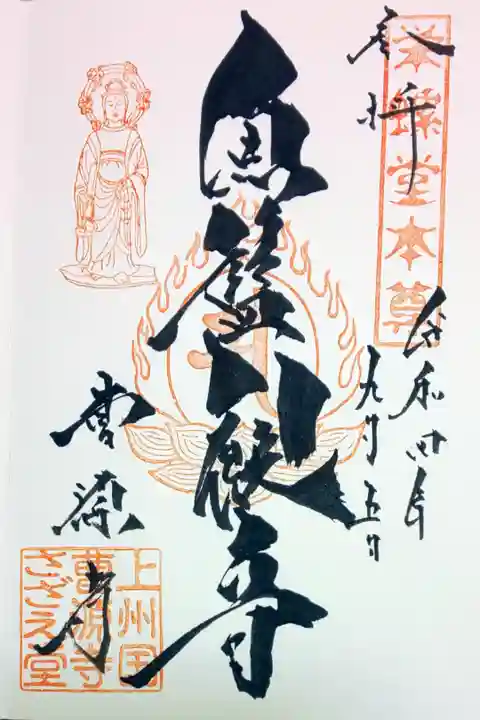 奉拝
栄螺堂本尊
令和四年
九月五日
魚籃観音
曹源寺
上州国
曹源寺
さざえ堂